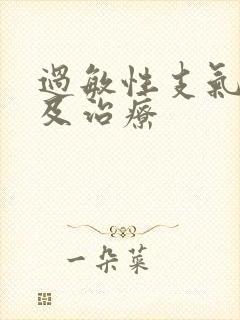 過敏性支氣
及治療
一朵菜